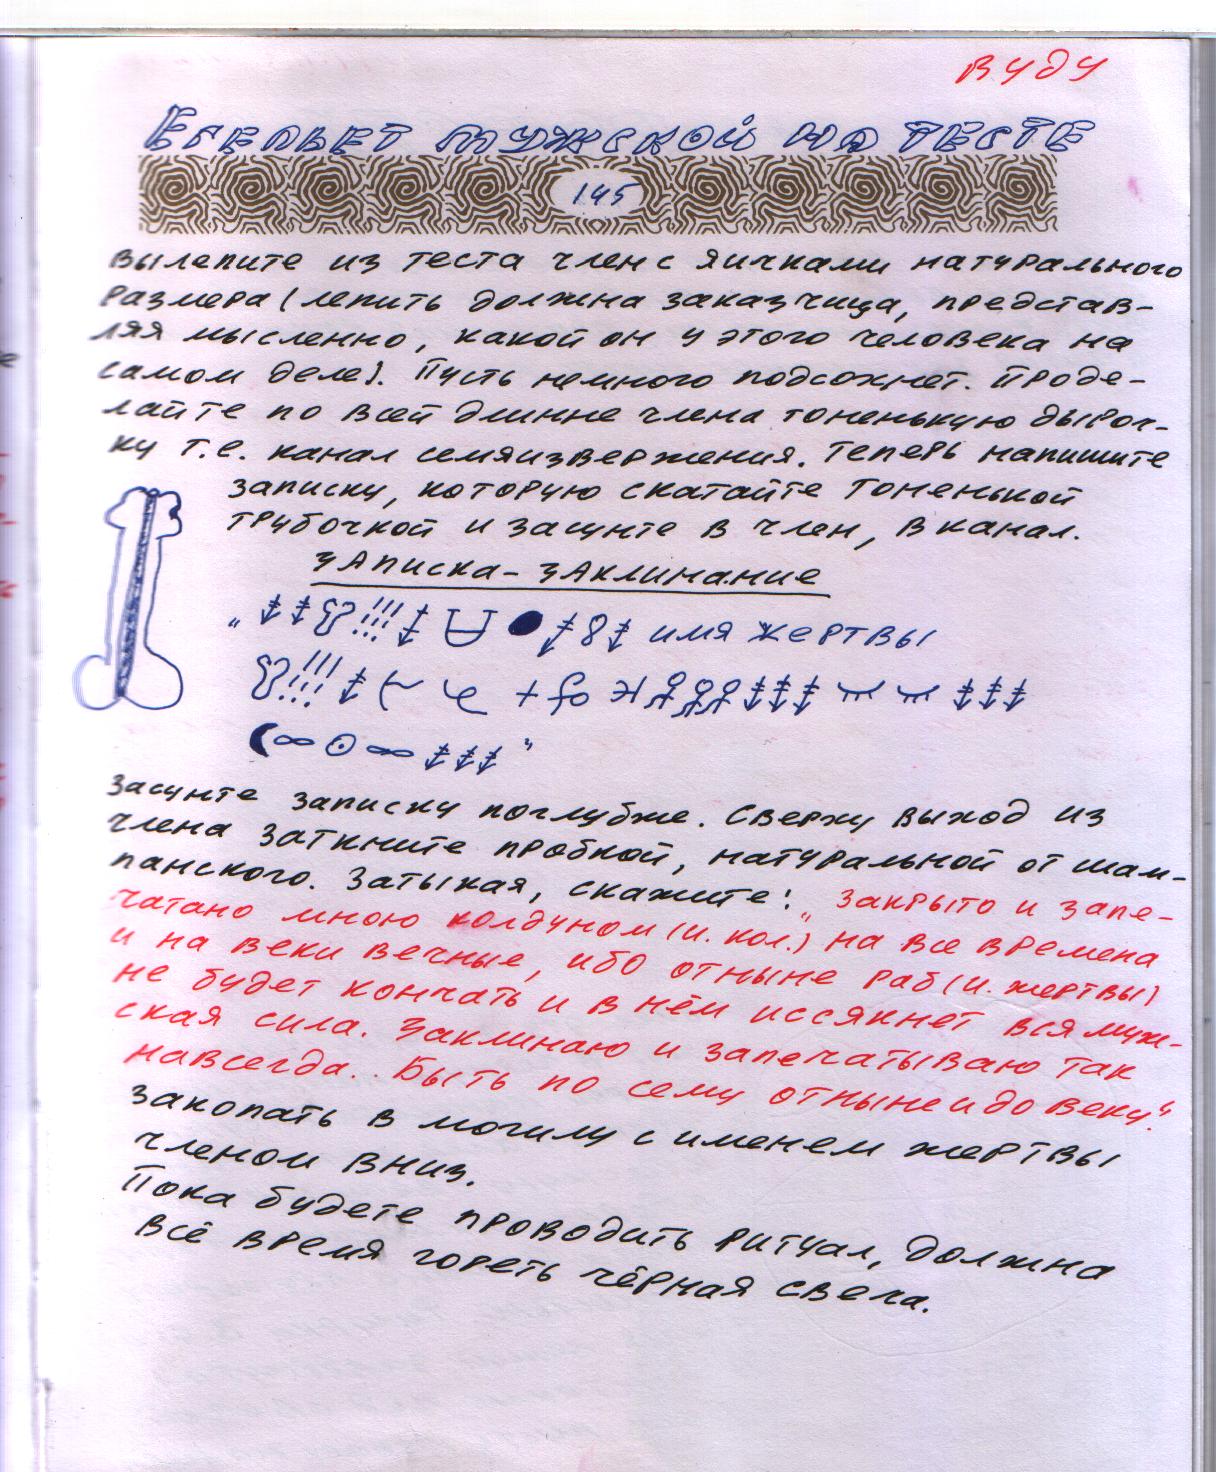 ВУДУ
Егельбет мужской на тесте
145
Вылепите из теста член с яичками натурального
размера (лепить должна заказчица, представ-
ляя мысленно, какой он у этого человека на
самом деле). Пусть немного подсохнет. Проде-
лайте по всей длинне члена тоненькую дыроч-
ку т.е. канал семяизвержения. Теперь напишите
записку, которую скатайте тоненькой
трубочкой и засунте в член, в канал.
Записка-заклинание
имя жертвы
Засунте записку поглубже. Сверху выход из
члена заткните пробкой, натуральной от шам-
панского. Затыкая, скажите: „Закрыто и запе-
чатано мною колдуном (и. кол.) на все времена
и на веки вечные, ибо отныне раб (и. жертвы)
не будет кончать и в нём иссякнет вся муж-
ская сила. Заклинаю и запечатываю так
навсегда.. Быть по сему отныне и до веку."
Закопать в могилу с именем жертвы
членом вниз.
Пока будете проводить ритуал, должна
всё время гореть чёрная свеча.